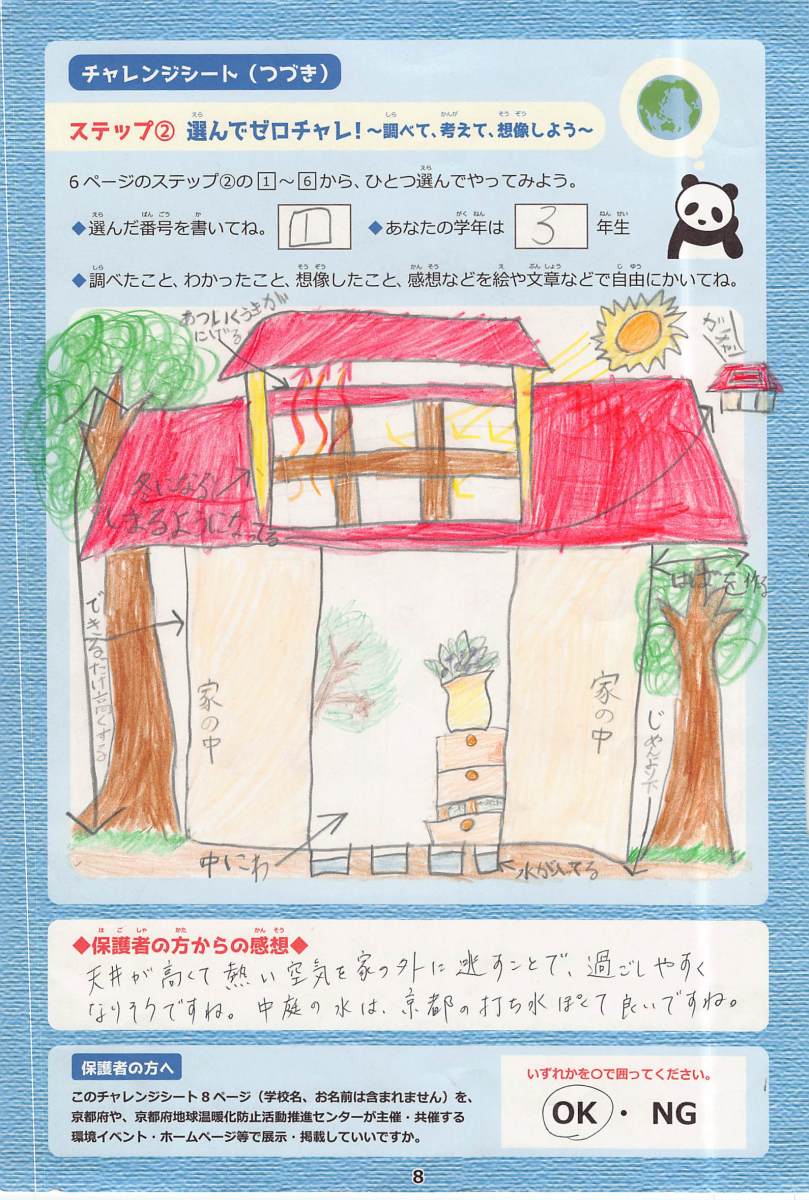 チャレンジシート（つづき）
ステップ② 選んでゼロチャレ！～調べて、考えて、想像しよう～
6ページのステップ②の1～6から、ひとつ選んでやってみよう。
◆選んだ番号を書いてね。 1 ◆あなたの学年は 3 年生
◆調べたこと、わかったこと、想像したこと、感想などを絵や文章などで自由にかいてね。
あついくうきが
にげる
冬になると
しまるようになってる
はばを作る
できるだけ高くする
家の中
家の中
じめんより下
中にわ
◆保護者の方からの感想◆
天井が高くて熱い空気を家の外に逃すことで、過ごしやすく
なりそうですね。中庭の水は、京都の打ち水ぽくて良いですね。
保護者の方へ
このチャレンジシート8ページ（学校名、お名前は含まれません）を、
京都府や、京都府地球温暖化防止活動推進センターが主催・共催する
環境イベント・ホームページ等で展示・掲載していいですか。
いずれかを○で囲ってください。
OK ・ NG
8